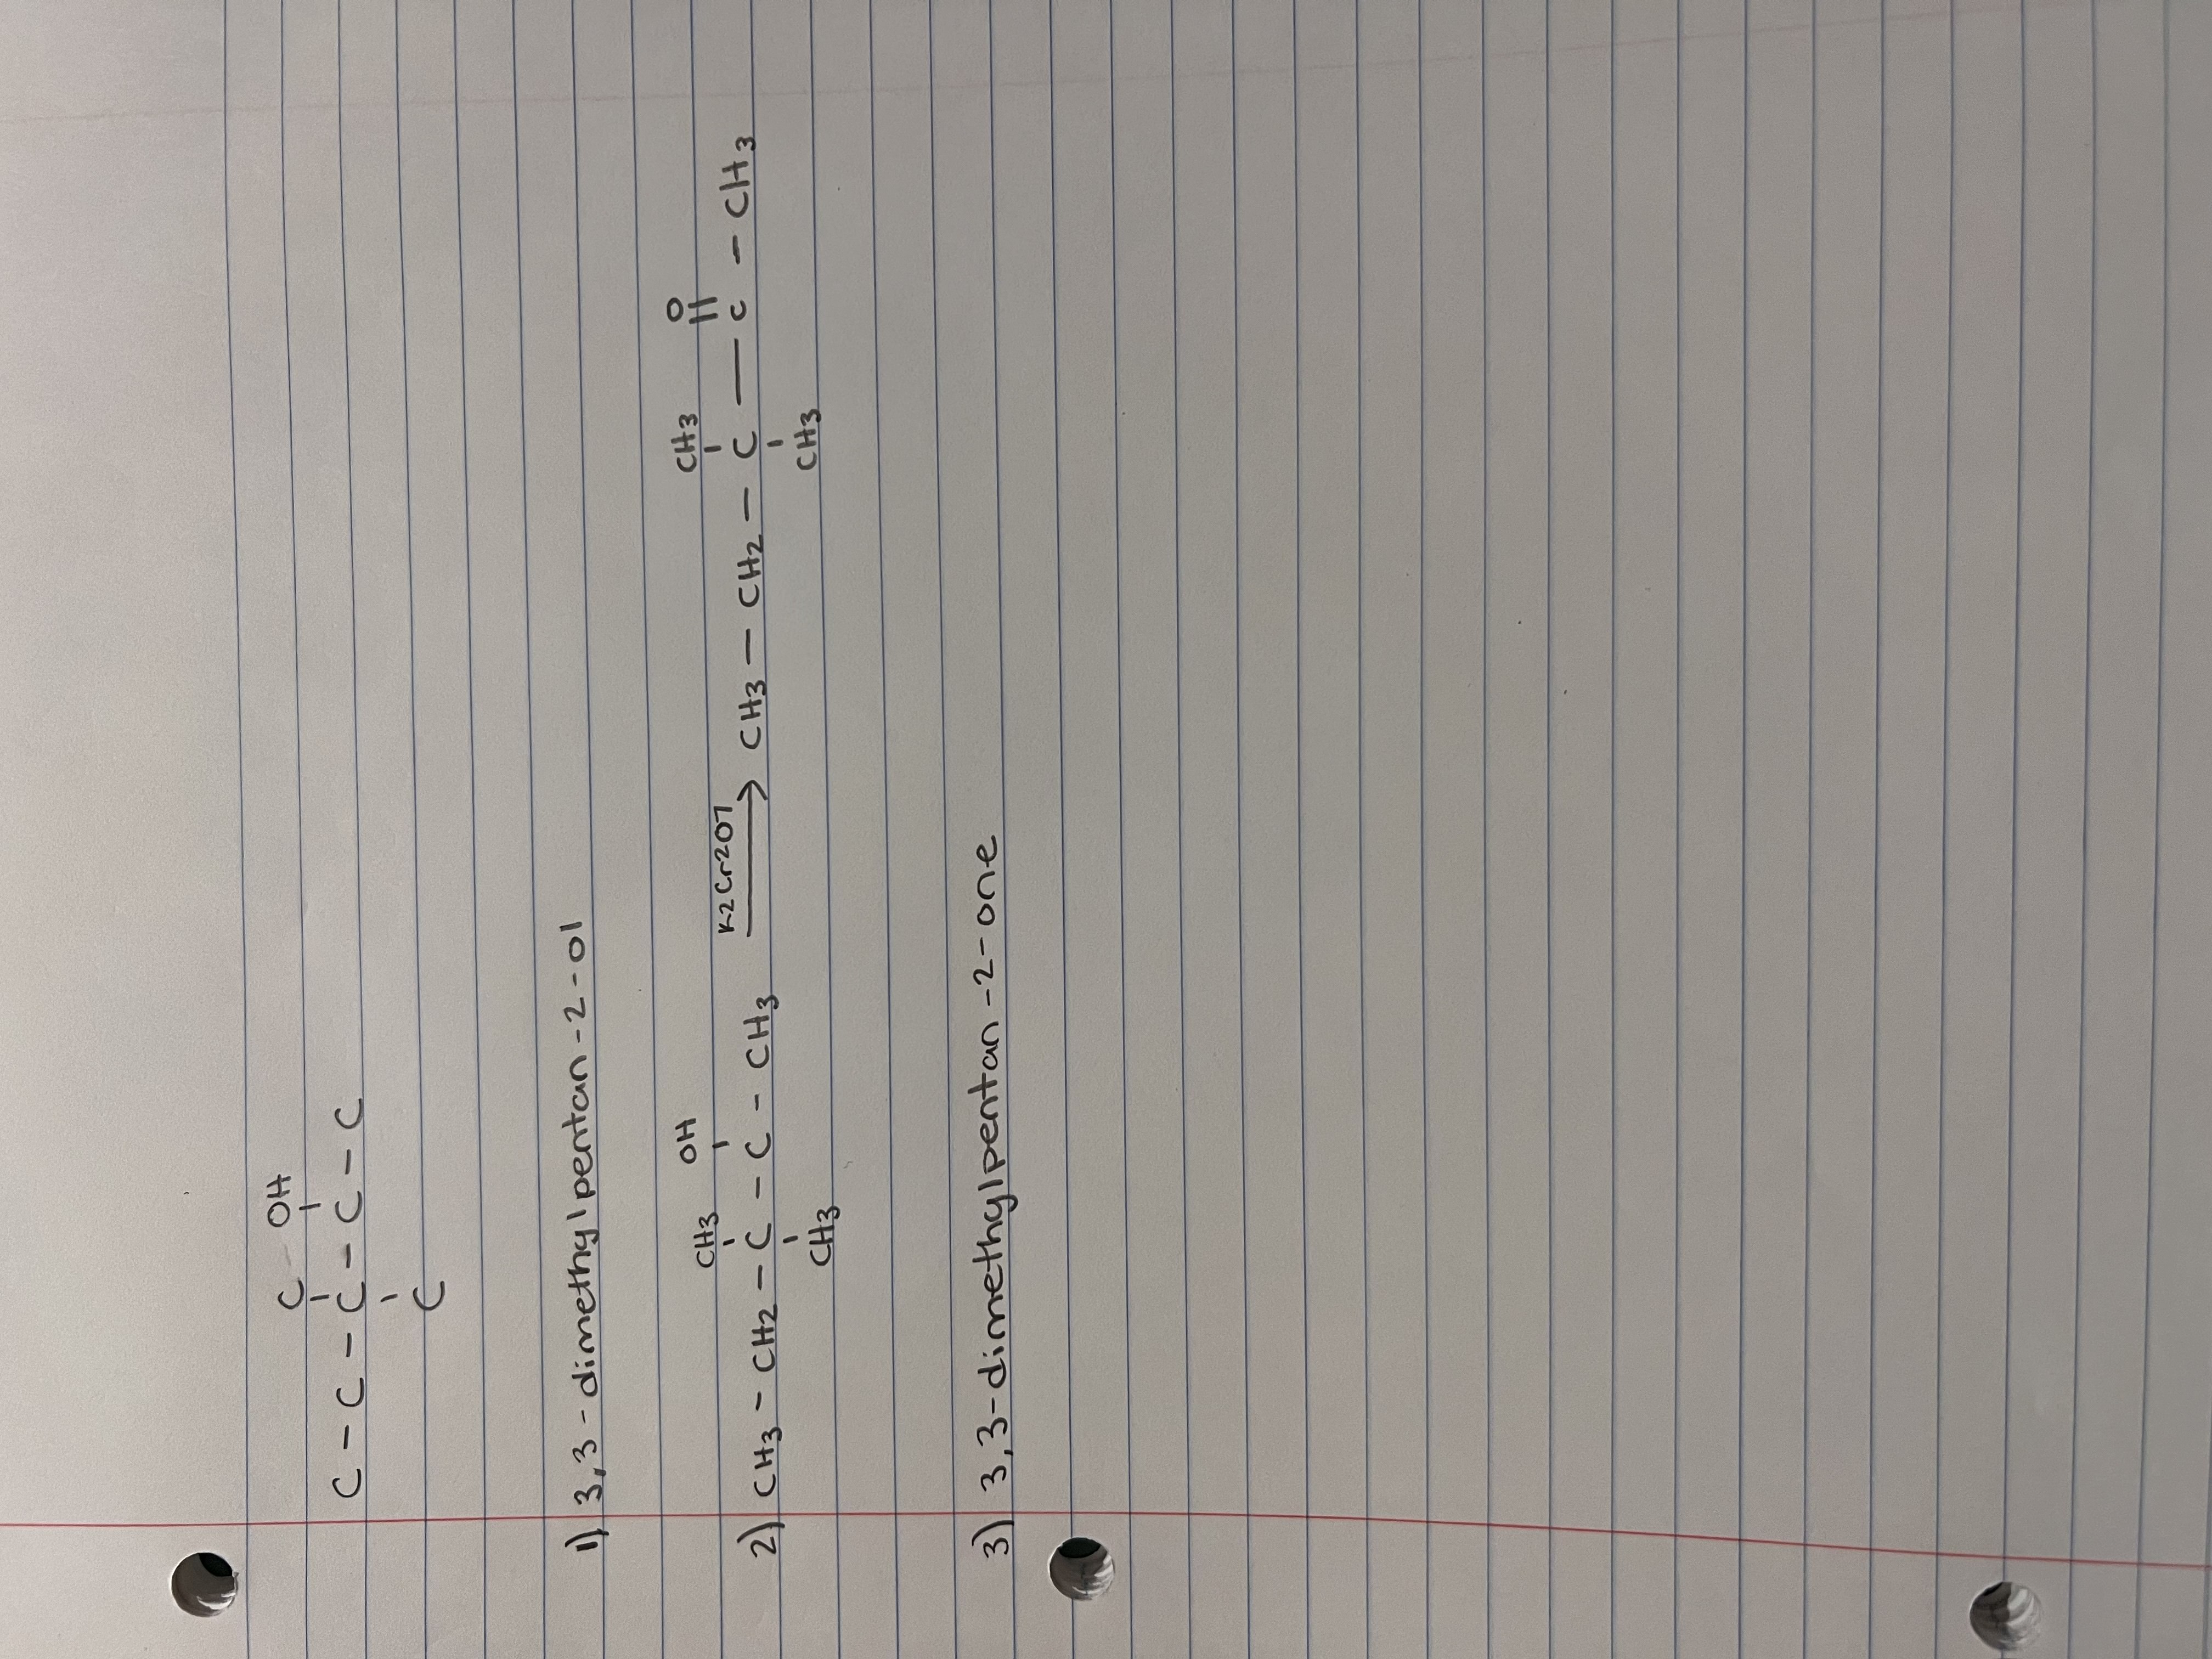 C OH
C - C - C - C - C
C
1) 3,3 - dimethylpentan - 2 - ol
CH3 OH
2) CH3 - CH2 - C - C - CH3 K2Cr2O7 → CH3 - CH2 - C — C - CH3
CH3
CH3 O
CH3
3) 3,3-dimethylpentan-2-one